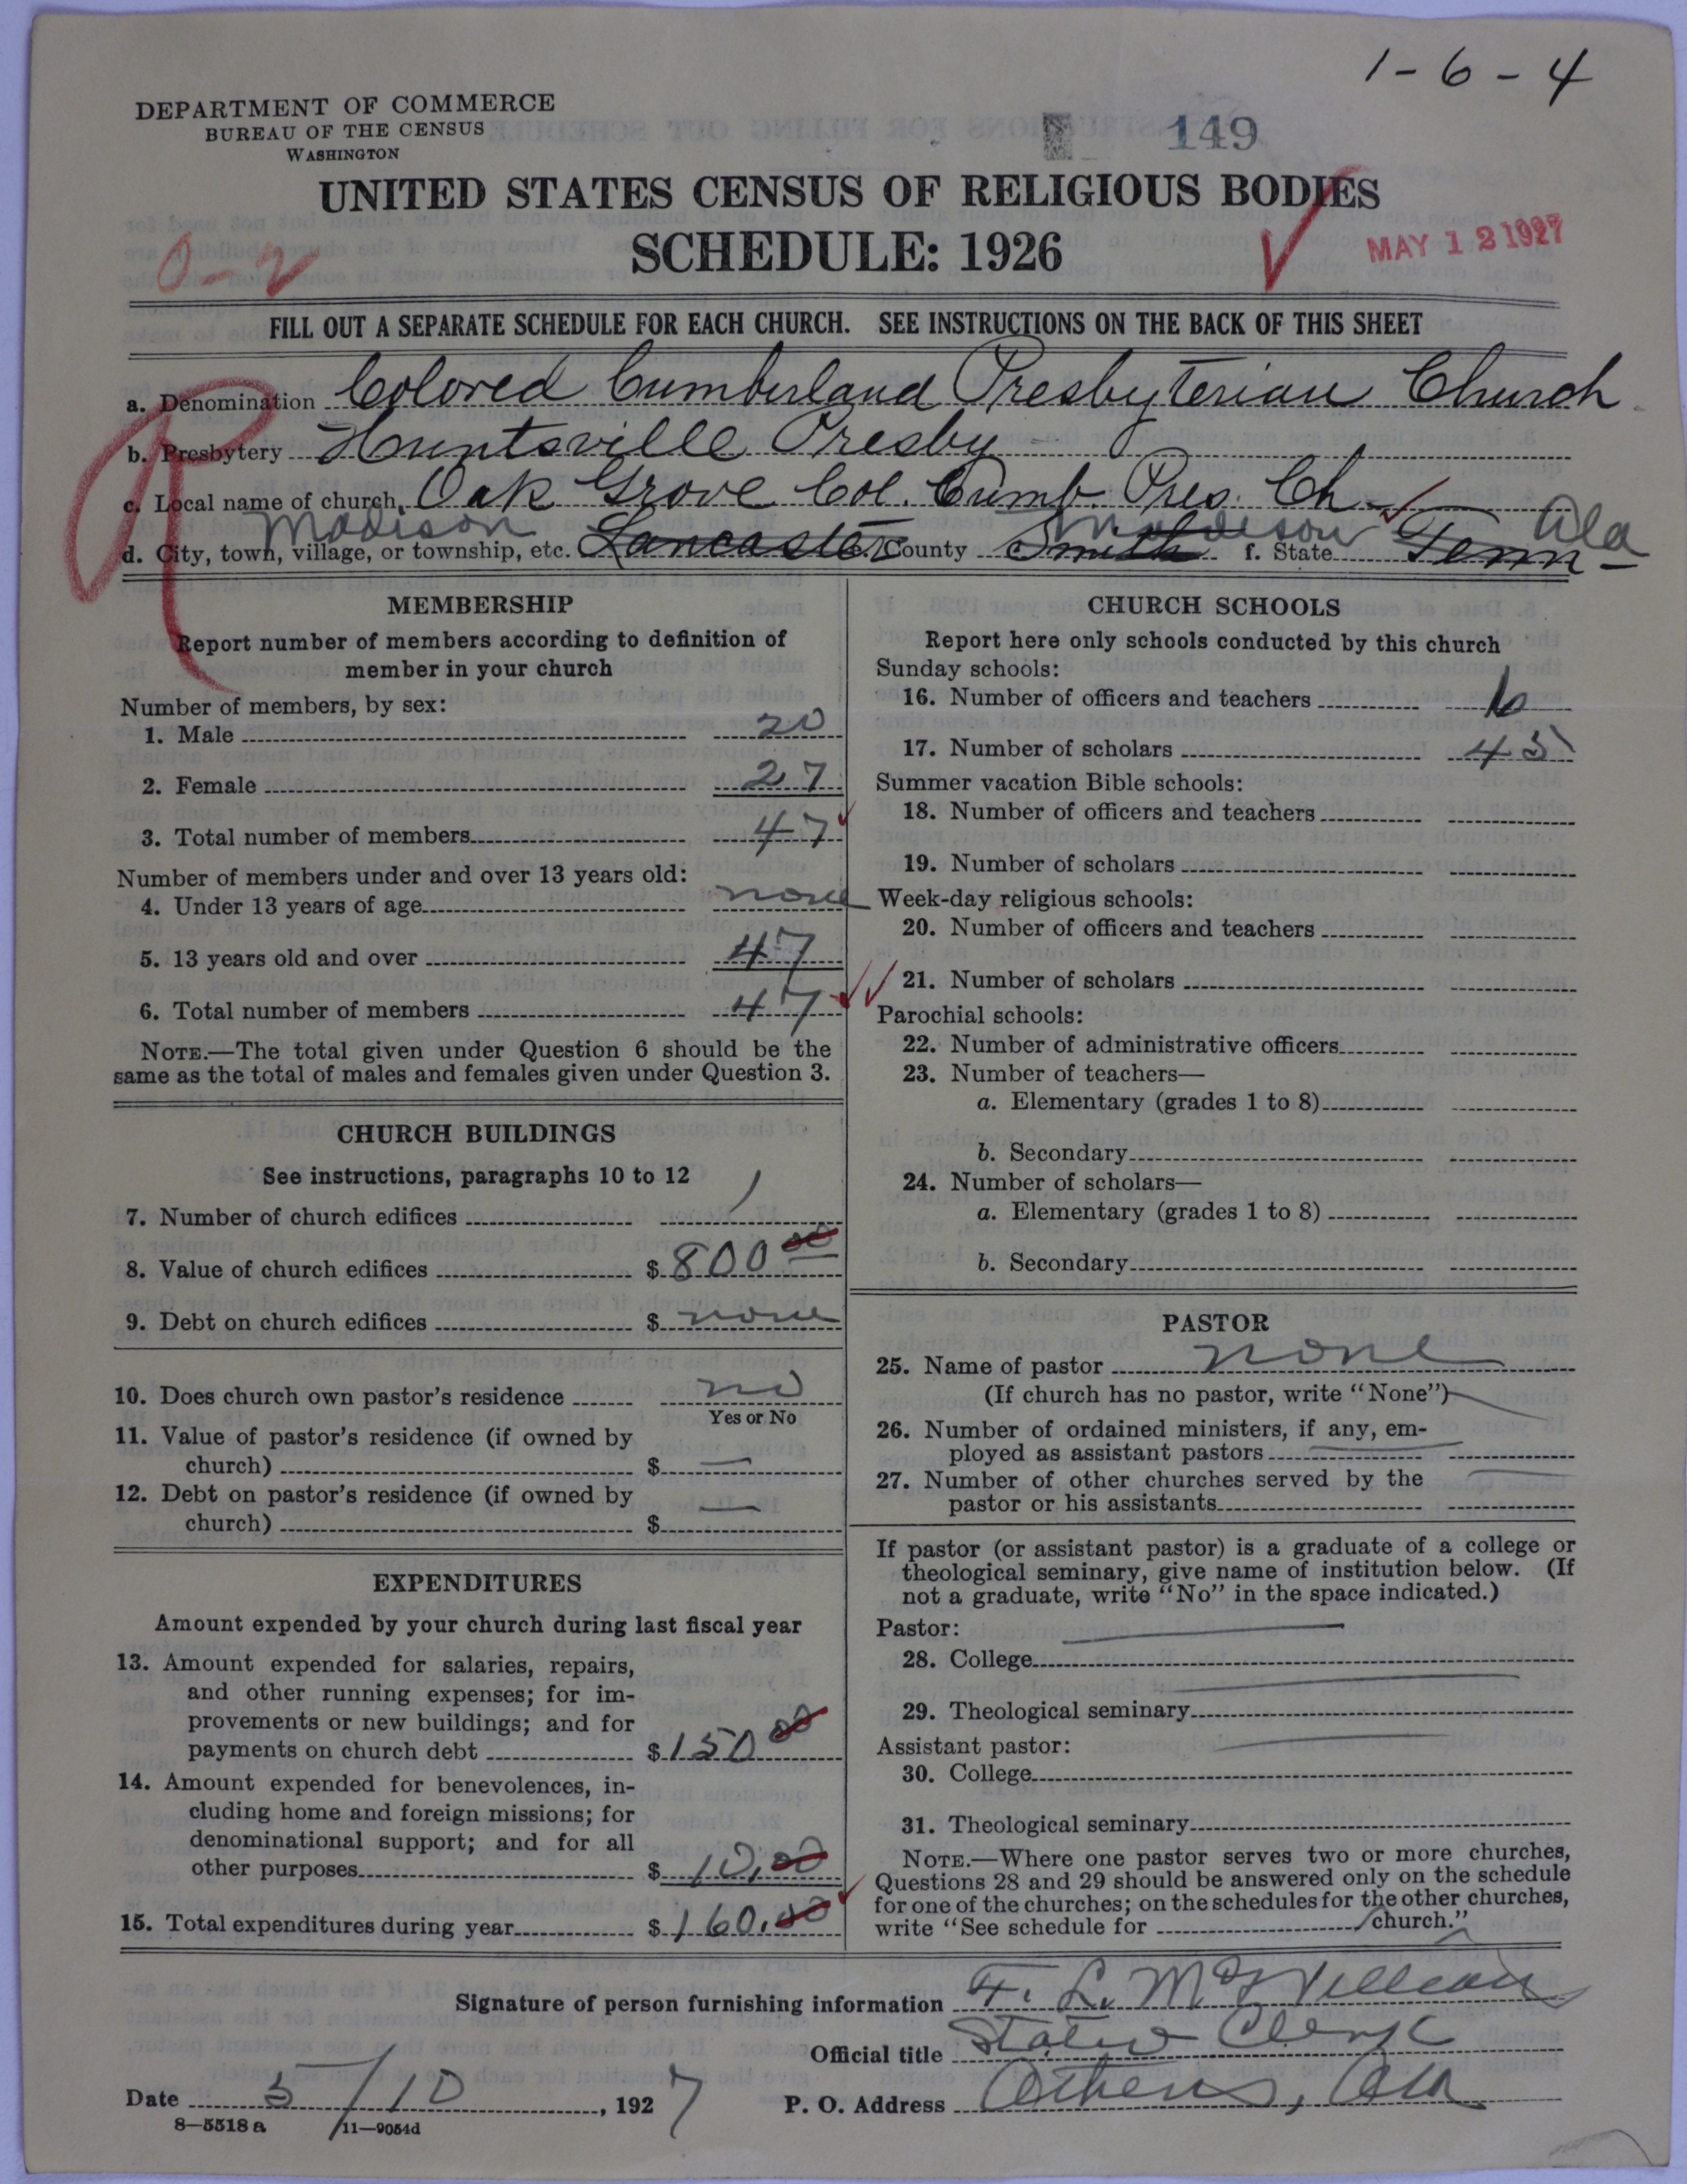 1-6-4
DEPARTMENT OF COMMERCE
BUREAU OF THE CENSUS
WASHINGTON
149
UNITED STATES CENSUS OF RELIGIOUS BODIES
SCHEDULE: 1926
MAY 12 1927
0-2
FILL OUT A SEPARATE SCHEDULE FOR EACH CHURCH. SEE INSTRUCTIONS ON THE BACK OF THIS SHEET
a. Denomination Colored Cumberland Presbyterian Church
b. Presbytery Huntsville Presby
c. Local name of church, Oak Grove Col. Cumb. Pres. Ch
Madison Madison Ala
d. City, town, village, or township, etc. Lancaster County Smith f. State Tenn
R
MEMBERSHIP
Report number of members according to definition of
member in your church
Number of members, by sex:
1. Male 20
2. Female 27
3. Total number of members 47
Number of members under and over 13 years old:
4. Under 13 years of age none
5. 13 years old and over 47
6. Total number of members 47
NOTE.—The total given under Question 6 should be the
same as the total of males and females given under Question 3.
CHURCH BUILDINGS
See instructions, paragraphs 10 to 12
7. Number of church edifices 1
8. Value of church edifices $ 800 00
9. Debt on church edifices $ none
10. Does church own pastor's residence no
Yes or No
11. Value of pastor's residence (if owned by
church) $ —
12. Debt on pastor's residence (if owned by
church) $ —
EXPENDITURES
Amount expended by your church during last fiscal year
13. Amount expended for salaries, repairs,
and other running expenses; for im-
provements or new buildings; and for
payments on church debt $ 150 00
14. Amount expended for benevolences, in-
cluding home and foreign missions; for
denominational support; and for all
other purposes $ 10.00
15. Total expenditures during year $ 160.00
CHURCH SCHOOLS
Report here only schools conducted by this church
Sunday schools:
16. Number of officers and teachers 6
17. Number of scholars 45
Summer vacation Bible schools:
18. Number of officers and teachers
19. Number of scholars
Week-day religious schools:
20. Number of officers and teachers
21. Number of scholars
Parochial schools:
22. Number of administrative officers
23. Number of teachers—
a. Elementary (grades 1 to 8)
b. Secondary
24. Number of scholars—
a. Elementary (grades 1 to 8)
b. Secondary
PASTOR
25. Name of pastor none
(If church has no pastor, write "None")
26. Number of ordained ministers, if any, em-
ployed as assistant pastors
27. Number of other churches served by the
pastor or his assistants
If pastor (or assistant pastor) is a graduate of a college or
theological seminary, give name of institution below. (If
not a graduate, write "No" in the space indicated.)
Pastor:
28. College
29. Theological seminary
Assistant pastor:
30. College
31. Theological seminary
NOTE.—Where one pastor serves two or more churches,
Questions 28 and 29 should be answered only on the schedule
for one of the churches; on the schedules for the other churches,
write "See schedule for church."
Signature of person furnishing information F. L. McWilleams
Official title Stated Clerk
Date 5/10, 1927 P. O. Address Athens, Ala
8—5518 a 11—9054d